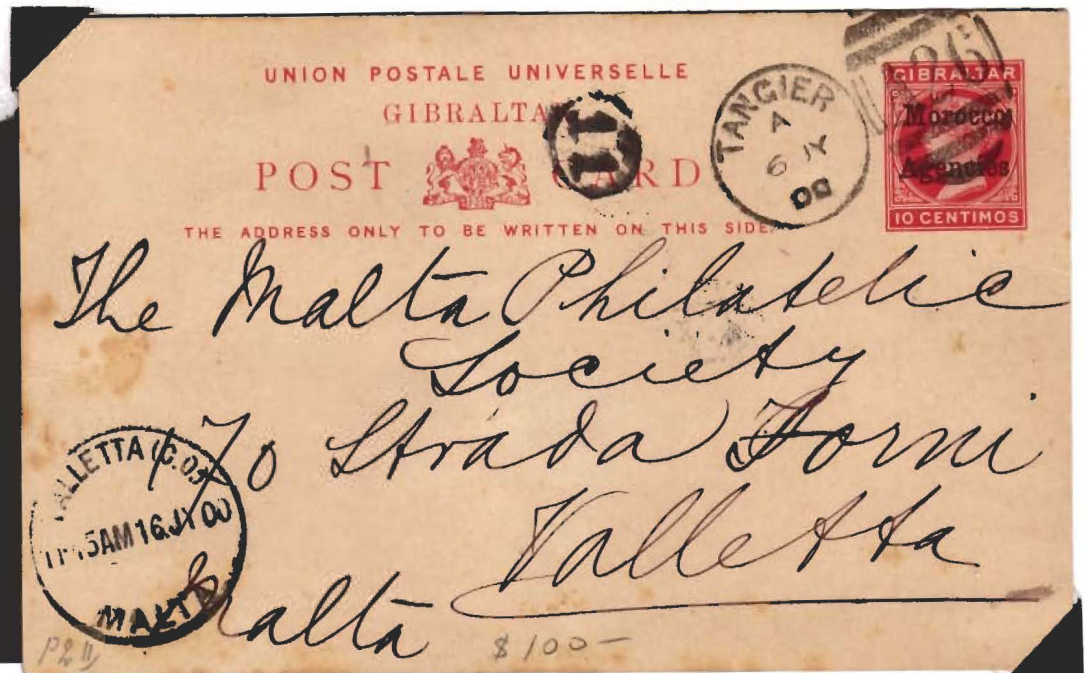 UNION POSTALE UNIVERSELLE
GIBRALTAR
POST CARD
THE ADDRESS ONLY TO BE WRITTEN ON THIS SIDE.
11
TANGIER
A
6 JY
00
GIBRALTAR
Morocco
Agencies
10 CENTIMOS
The Malta Philatelic
Society
170 Strada Forni
Valletta
Malta
VALLETTA (G.O.)
11.45AM 16.JY 00
MALTA
P2 II
$100-